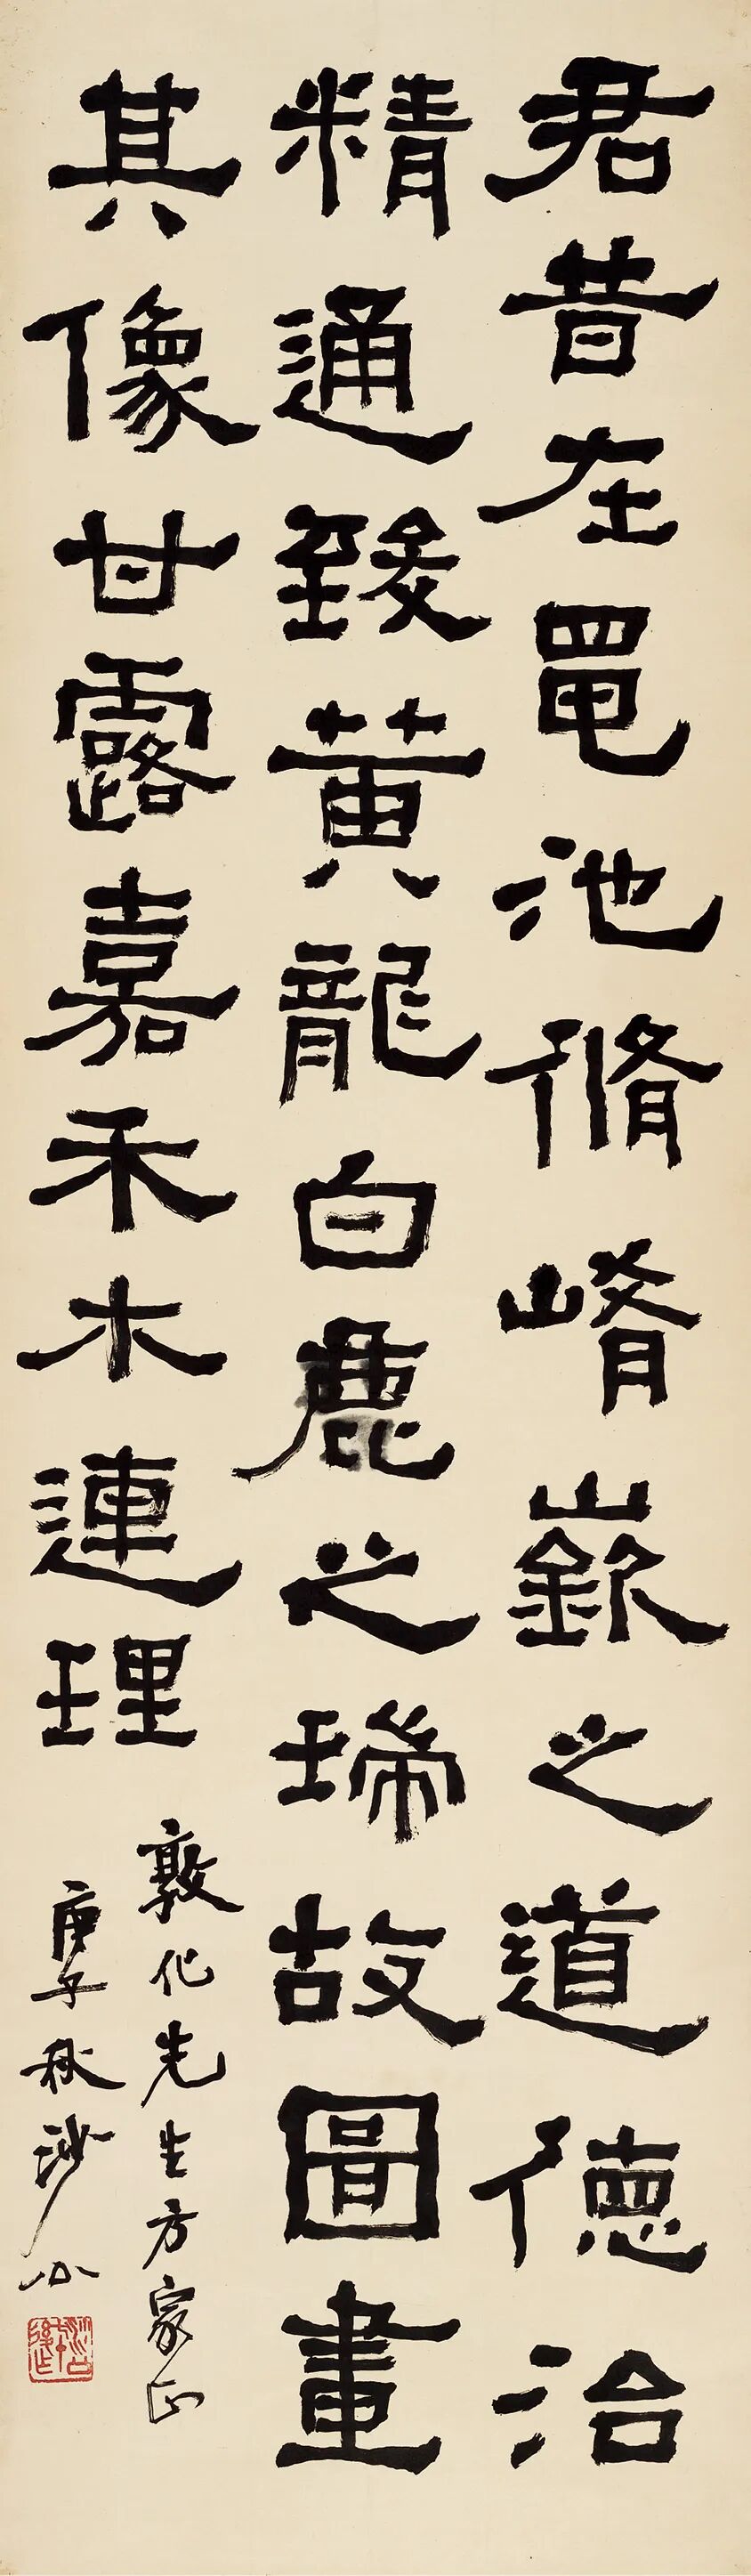 君昔在黽池脩崤嶔之道德治
精通致黃龍白鹿之瑞故圖畫
其像甘露嘉禾木連理
敦化先生方家正
庚子秋沙公